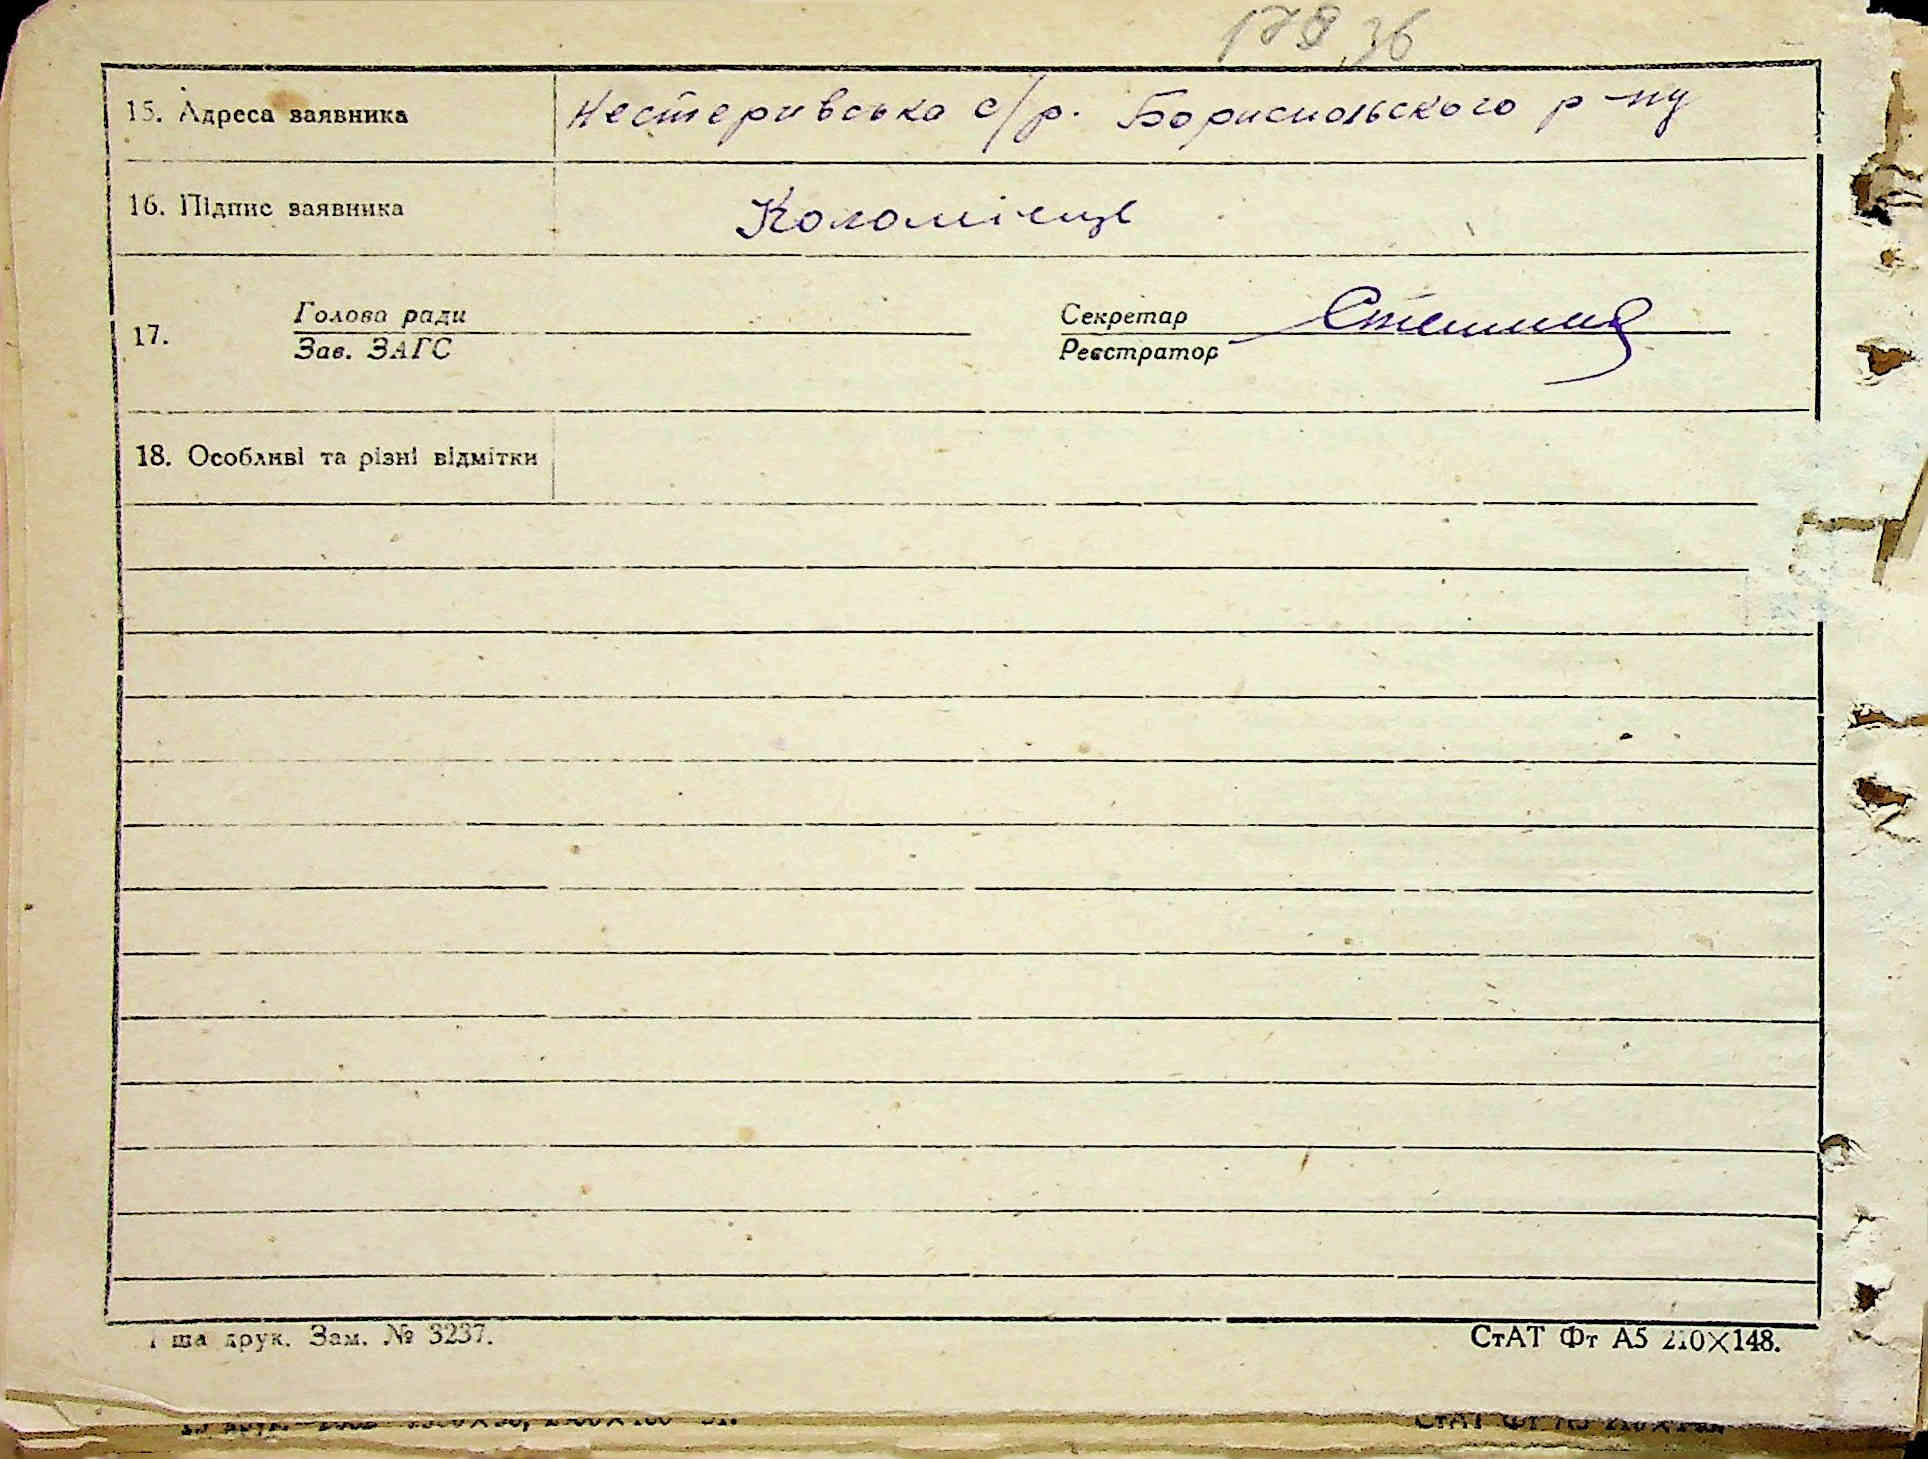 15. Адреса заявника Нестерівська с/р. Бориспольського р-ну
16. Підпис заявника Коломієць
17. Голова ради Секретар
Зав. ЗАГС Реєстратор
18. Особливі та різні відмітки
ша друк. Зам. № 3237. СтАТ Фт А5 210×148.